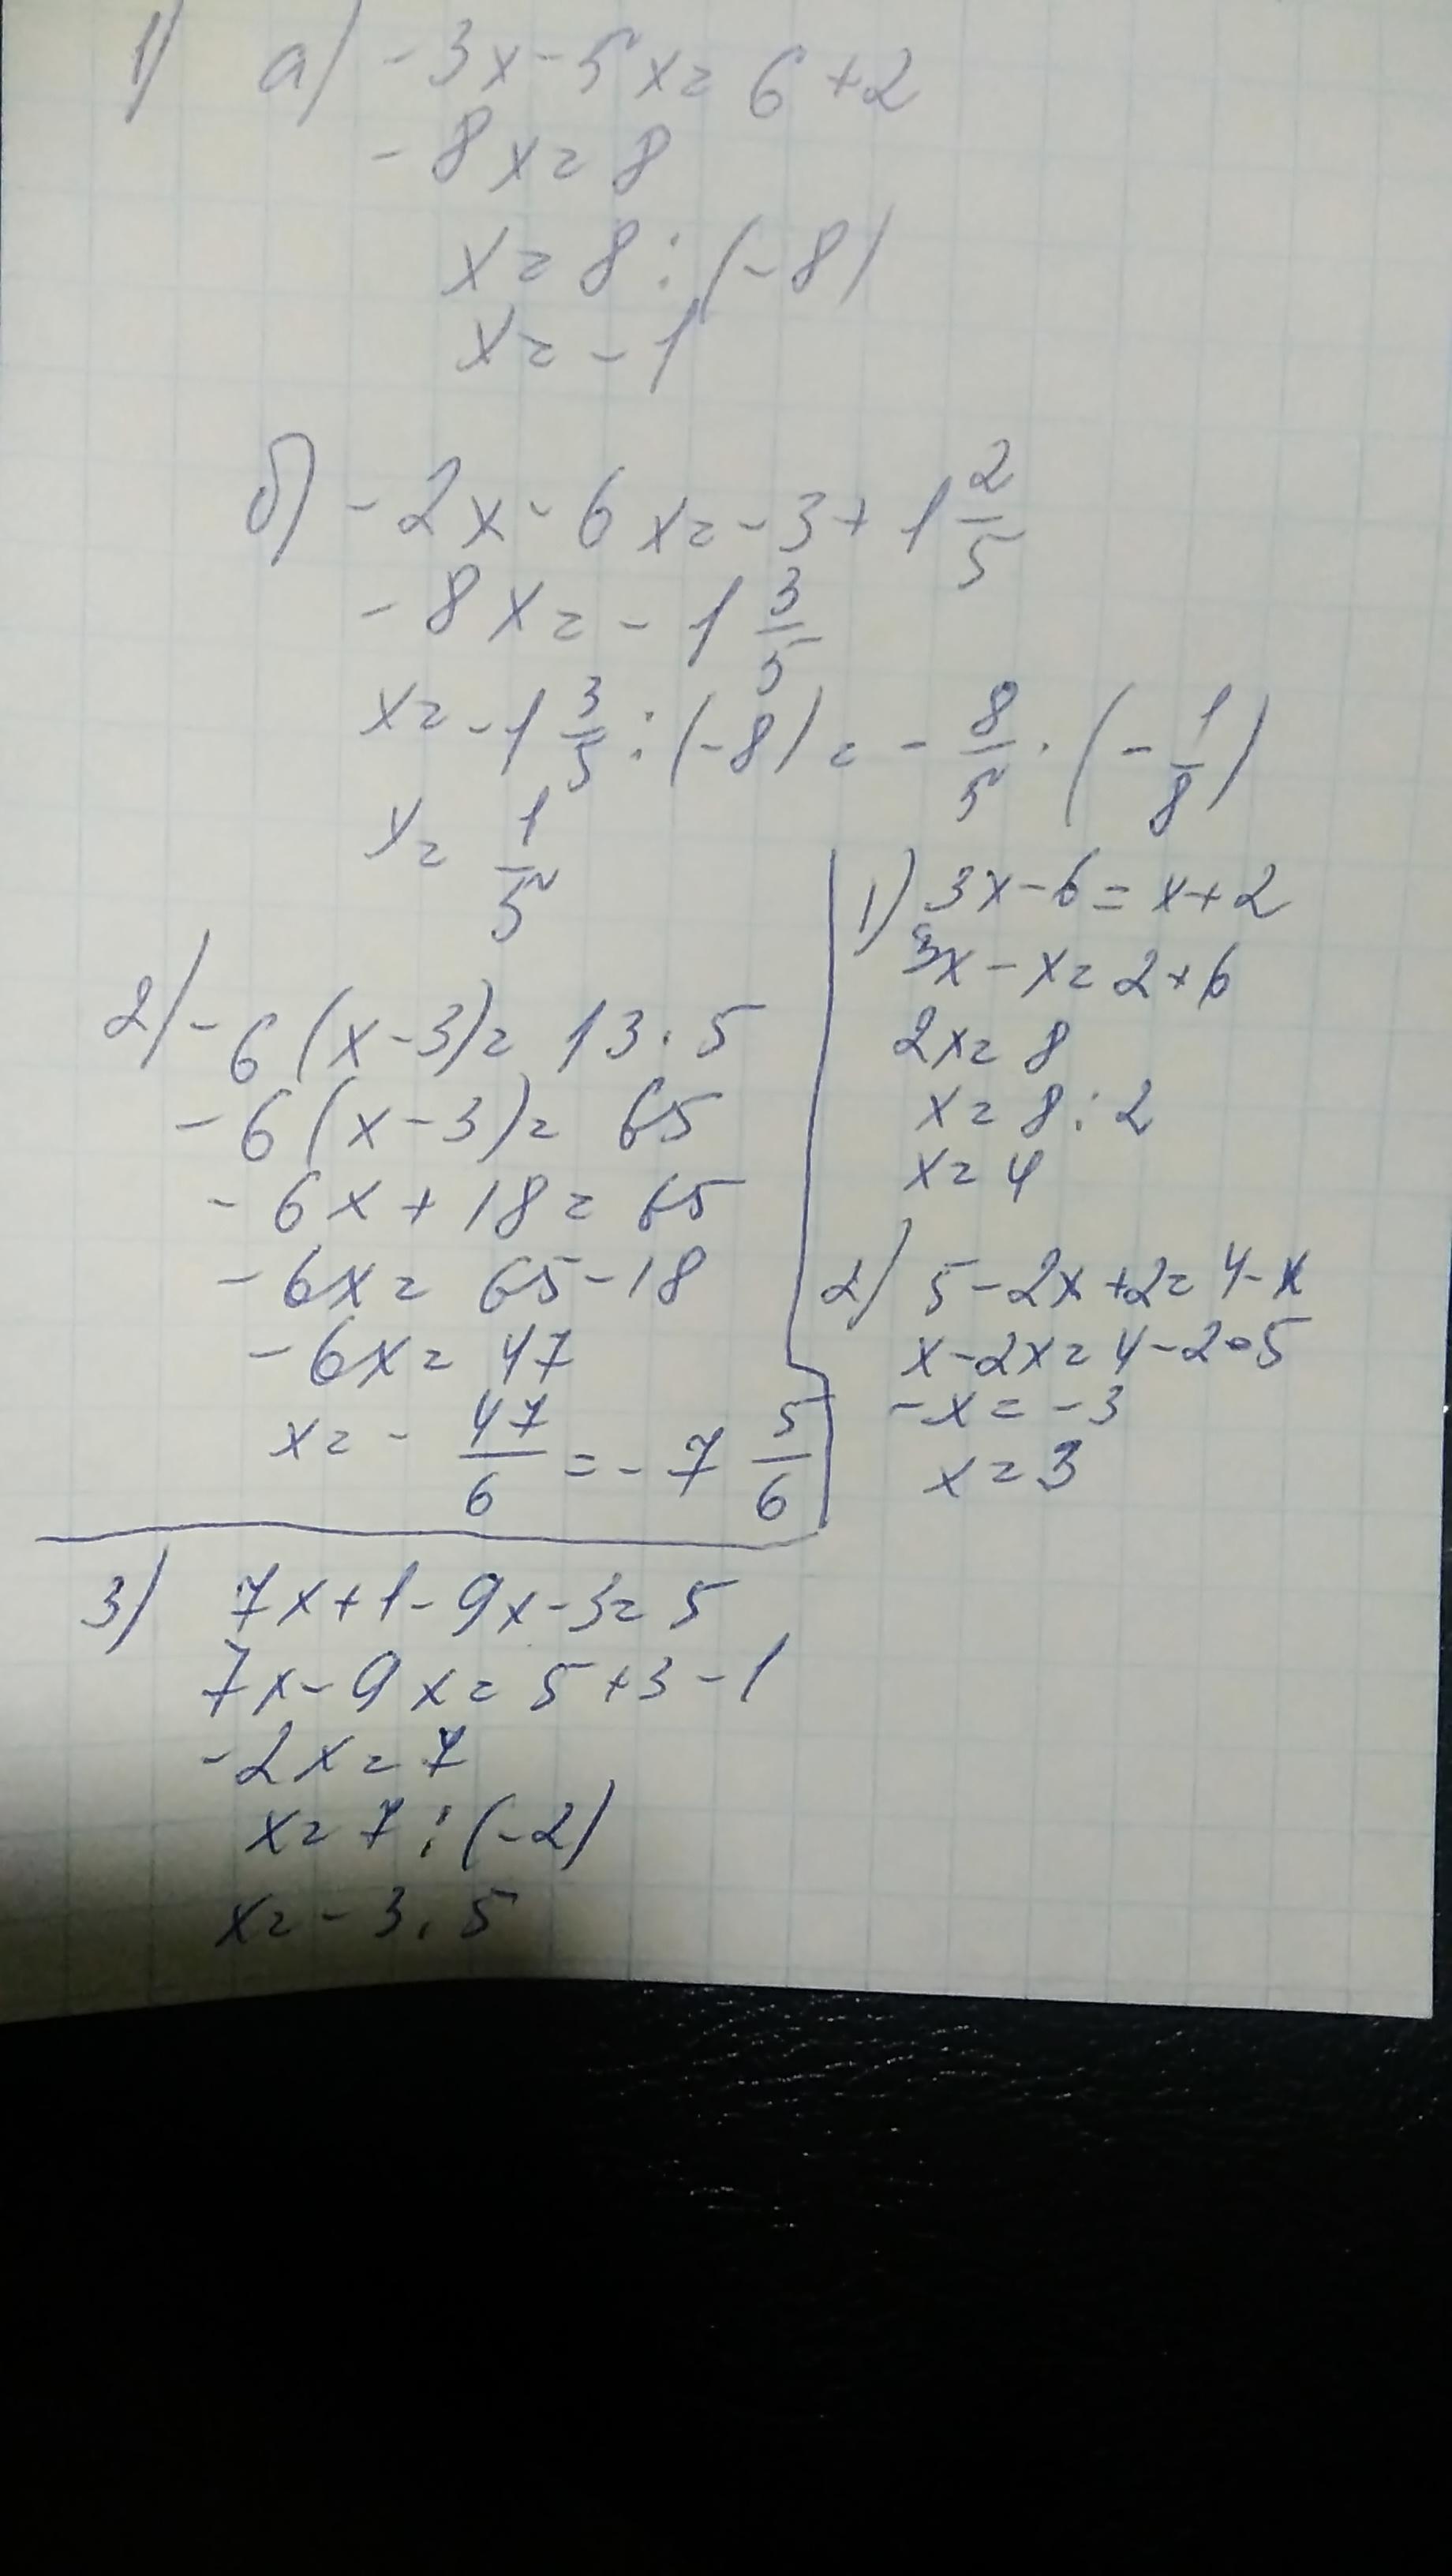 1) а) -3x-5x=6+2
-8x=8
x=8:(-8)
x=-1
б) -2x-6x=-3+1 2/5
-8x=-1 3/5
x=-1 3/5:(-8)=-8/5·(-1/8)
x=1/5
2) -6(x-3)=13·5
-6(x-3)=65
-6x+18=65
-6x=65-18
-6x=47
x=-47/6=-7 5/6
1) 3x-6=x+2
3x-x=2+6
2x=8
x=8:2
x=4
2) 5-2x+2=4-x
x-2x=4-2-5
-x=-3
x=3
3) 7x+1-9x-3=5
7x-9x=5+3-1
-2x=7
x=7:(-2)
x=-3,5